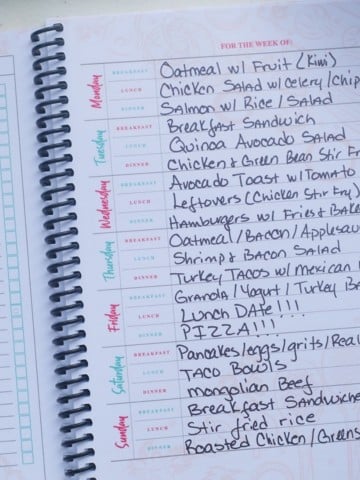 FOR THE WEEK OF:
Monday
BREAKFAST Oatmeal w/ Fruit (Kiwi)
LUNCH Chicken Salad w/ Celery/Chip
DINNER Salmon w/ Rice/Salad
Tuesday
BREAKFAST Breakfast Sandwich
LUNCH Quinoa Avocado Salad
DINNER Chicken & Green Bean Stir Fr
Wednesday
BREAKFAST Avocado Toast w/ Tomato
LUNCH Leftovers (Chicken Stir Fry)
DINNER Hamburgers w/ Fries & Bake
Thursday
BREAKFAST Oatmeal/Bacon/Applesau
LUNCH Shrimp & Bacon Salad
DINNER Turkey Tacos w/ Mexican
Friday
BREAKFAST Granola/Yogurt/Turkey Ba
LUNCH Lunch Date!!!
DINNER PIZZA!!!
Saturday
BREAKFAST Pancakes/eggs/grits/Real
LUNCH TACO Bowls
DINNER mongolian Beef
Sunday
BREAKFAST Breakfast Sandwiche
LUNCH Stir fried rice
DINNER Roasted Chicken/Greens